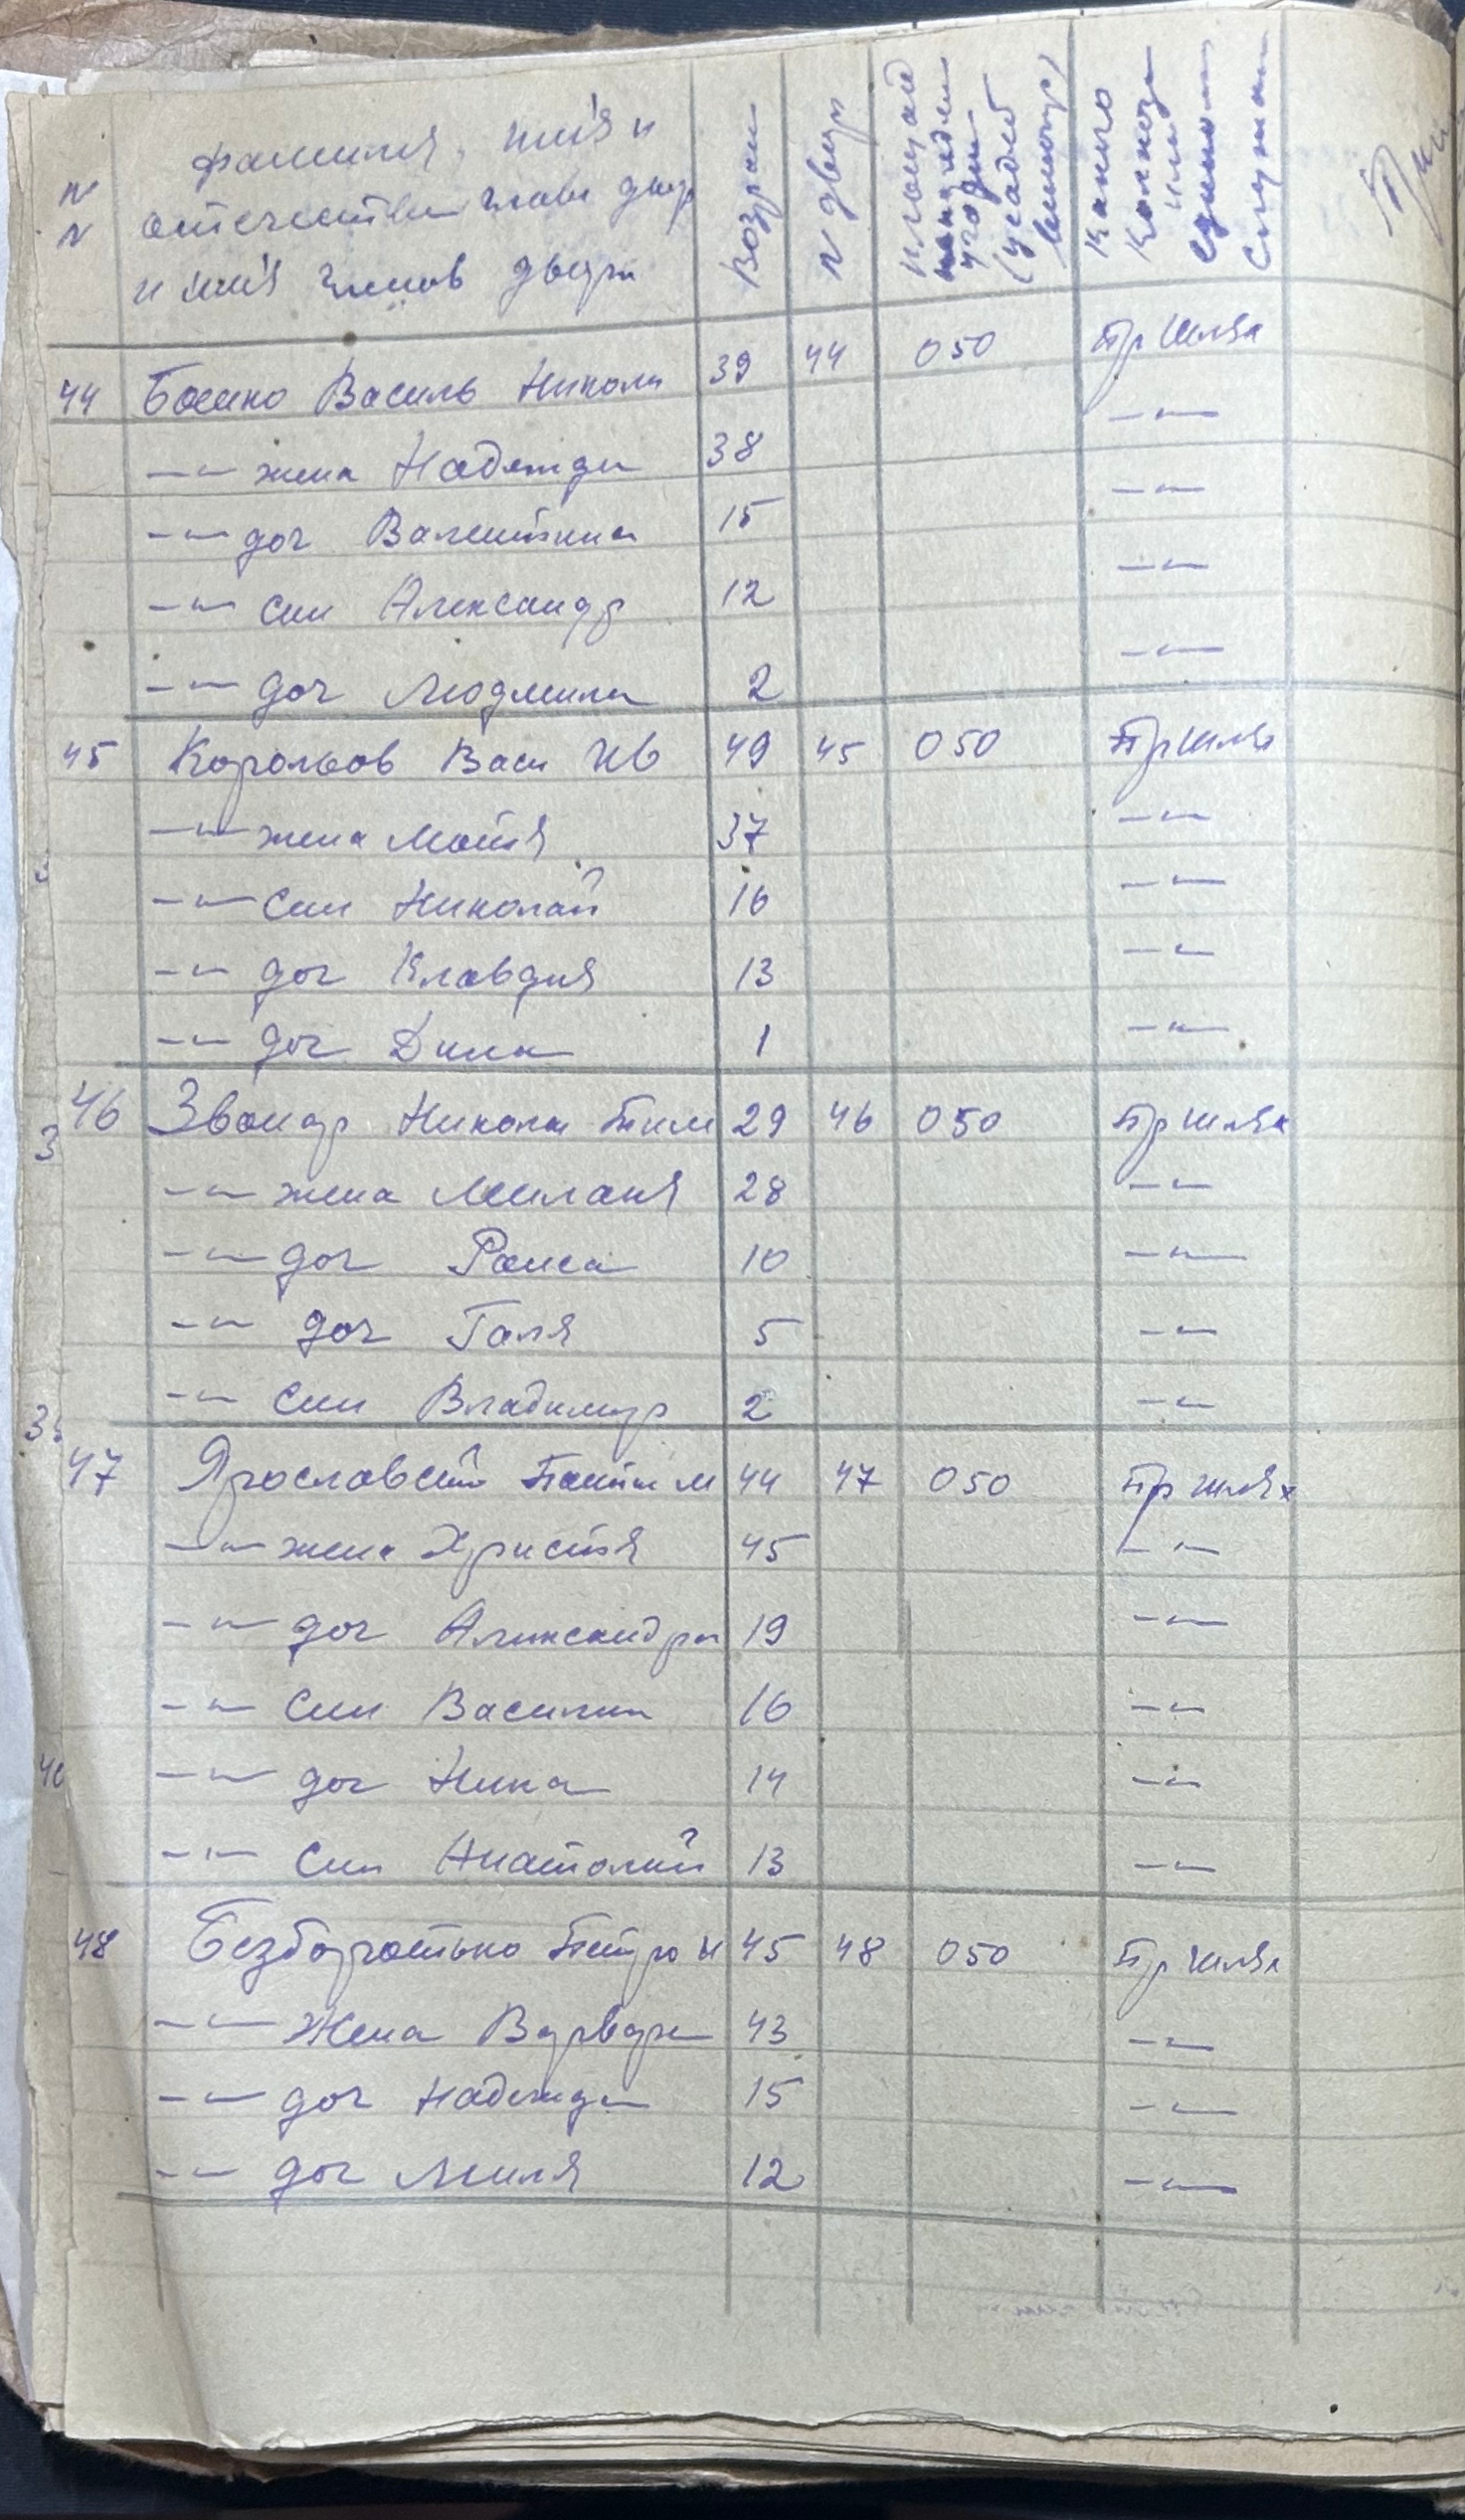 N N
фамилия, имя и
отечество глави двор
и имя членов двора
Возрас
N двора
площад
угодии
(усадеб
Какого
Колхоза
или
единол
служащ
При
44 Боенко Василь Никола 39 44 050 Пр Шлях
–"– жена Надежда 38 –"–
–"– доч Валентина 15 –"–
–"– син Александр 12 –"–
–"– доч Людмила 2 –"–
45 Корольов Васи Ив 49 45 050 Пр Шлях
–"– жена Мотя 37 –"–
–"– син Николай 16 –"–
–"– доч Клавдия 13 –"–
–"– доч Дина 1 –"–
46 Звонар Никола Тим 29 46 050 Пр Шлях
–"– жена Миланя 28 –"–
–"– доч Раиса 10 –"–
–"– доч Галя 5 –"–
–"– син Владимир 2 –"–
47 Ярославский М 44 47 050 Пр Шлях
–"– жена Христя 45 –"–
–"– доч Александра 19 –"–
–"– син Василий 16 –"–
–"– доч Нина 14 –"–
–"– син Анатолий 13 –"–
48 Безбородько Петро И 45 48 050 Пр Шлях
–"– Жена Варвара 43 –"–
–"– доч Надежда 15 –"–
–"– доч Миля 12 –"–